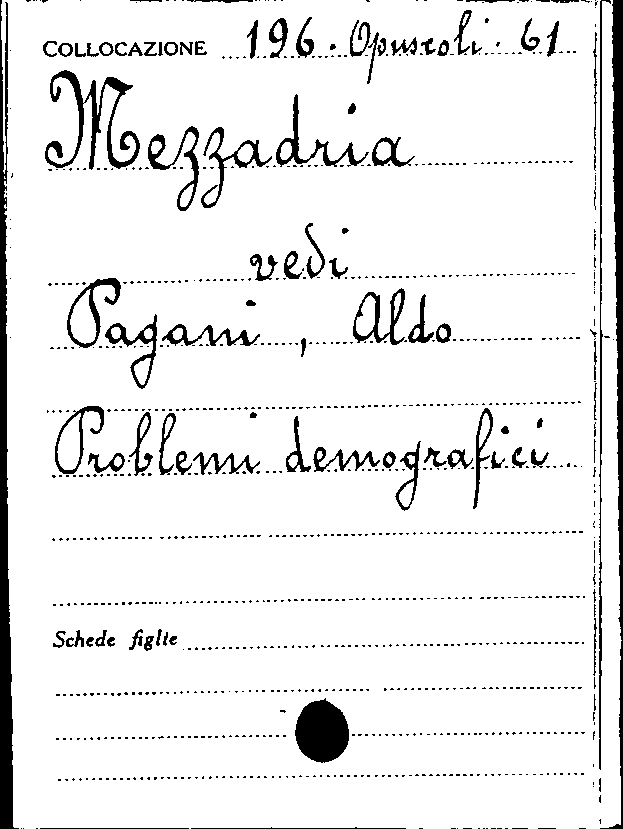 COLLOCAZIONE 196. Opuscoli. 61
Mezzadria
vedi
Pagani, Aldo
Problemi demografici.
Schede figlie